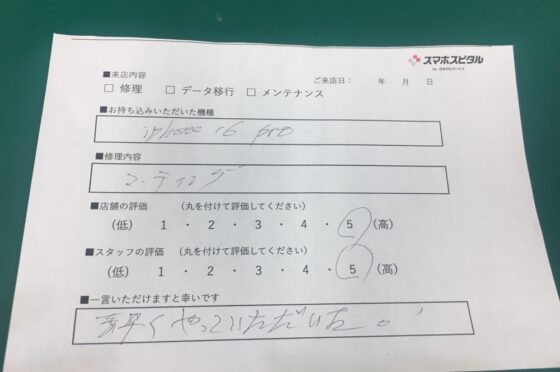 スマホスピタル
■来店内容
ご来店日： 年 月 日
□ 修理 □ データ移行 □ メンテナンス
■お持ち込みいただいた機種
iphone 16 pro.
■修理内容
コーティング
■店舗の評価 (丸を付けて評価してください)
(低) 1 ・ 2 ・ 3 ・ 4 ・ 5 (高)
■スタッフの評価 (丸を付けて評価してください)
(低) 1 ・ 2 ・ 3 ・ 4 ・ 5 (高)
■一言いただけますと幸いです
素早くやっていただいた。